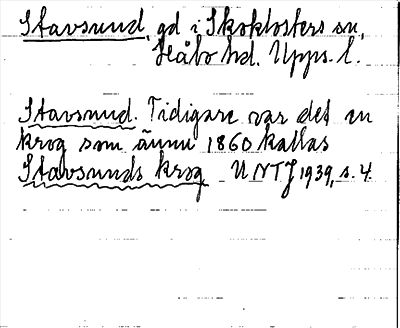 Stavsund, gd i Skoklosters sn,
Håbo hd. Upps. l.
Stavsund. Tidigare var det en
krog som ännu 1860 kallas
Stavsunds krog UNTJ 1939, s. 4.